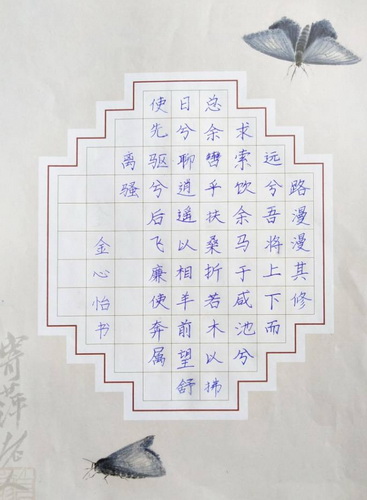 路漫漫其修
远兮吾将上下而
求索饮余马于咸池兮
总余辔乎扶桑折若木以拂
日兮聊逍遥以相羊前望舒
使先驱兮后飞廉使奔属
离骚
金心怡书
寄萍老人